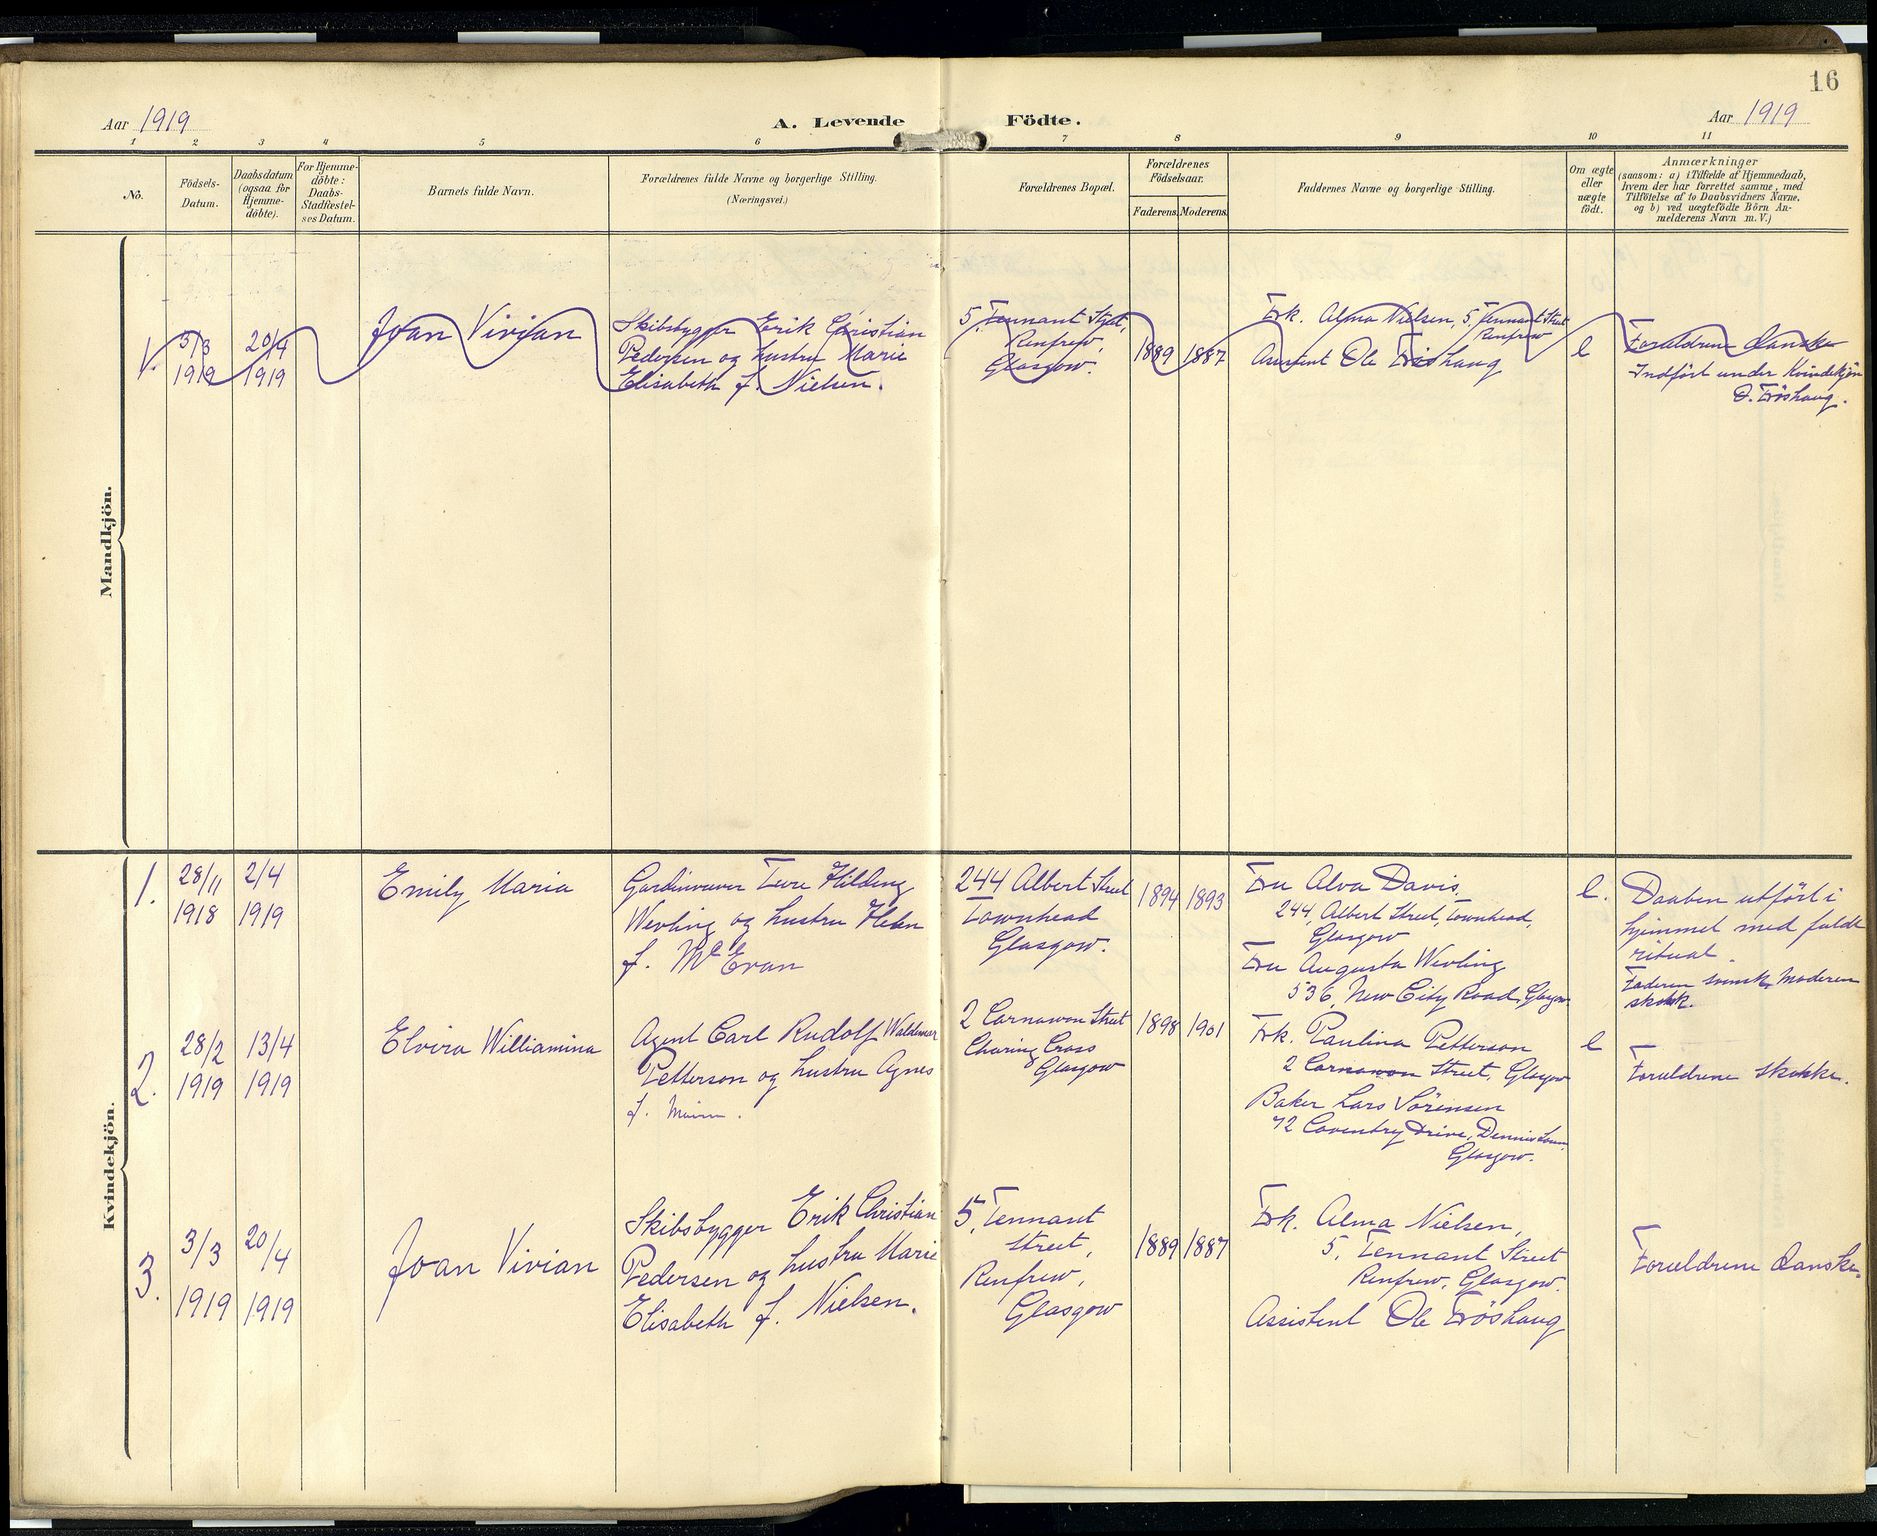 16
Aar 1919
A. Levende Födte.
Aar 1919
1 2 3 4 5 6 7 8 9 10 11
No.
Födsels-
Datum.
Daabsdatum
(ogsaa for
Hjemme-
döbte).
For Hjemme-
döbte:
Daabs-
Stadfæstel-
ses Datum.
Barnets fulde Navn.
Forældrenes fulde Navne og borgerlige Stilling.
(Næringsvei.)
Forældrenes Bopæl.
Forældrenes
Födselsaar.
Faderens. Moderens.
Faddernes Navne og borgerlige Stilling.
Om ægte
eller
uægte
födt.
Anmærkninger
(saasom: a) i Tilfælde af Hjemmedaab,
hvem der har forrettet samme, med
Tilföielse af to Daabsvidners Navne,
og b) ved uægtefödte Börn An-
melderens Navn m. V.)
Mandkjön.
1.
3/3
1919
20/4
1919
Joan Vivian
Skibsbygger Erik Christian
Pedersen og hustru Marie
Elisabeth f. Nielsen.
5, Tennant Street,
Renfrew,
Glasgow.
1889 1887
Frk. Alma Nielsen, 5, Tennant Street
Renfrew
Assistent Ole Fröshaug
e
Forældrene danske
Indfört under Kvindekjön
O. Fröshaug.
Kvindekjön.
1.
28/11
1918
2/4
1919
Emily Maria
Gardinvæver Ture Hilding
Wevling og hustru Helen
f. McEvan
244 Albert Street
Townhead
Glasgow.
1894 1893
Fru Alva Davis,
244, Albert Street, Townhead,
Glasgow
Fru Augusta Wevling
536, New City Road, Glasgow
e.
Daaben utfört i
hjemmet med fuldt
ritual.
Faderen svensk, Moderen
skotsk.
2.
28/2
1919
13/4
1919
Elvira Williamina
Agent Carl Rudolf Waldemar
Petterson og hustru Agnes
f.
2 Carnawon Street
Charing Cross
Glasgow
1898 1901
Frk. Paulina Petterson
2 Carnawon Street, Glasgow
Baker Lars Sörensen
72 Coventry Drive,
Glasgow.
e
Forældrene skotske.
3.
3/3
1919
20/4
1919
Joan Vivian
Skibsbygger Erik Christian
Pedersen og hustru Marie
Elisabeth f. Nielsen.
5, Tennant
Street,
Renfrew,
Glasgow
1889 1887
Frk. Alma Nielsen,
5, Tennant Street
Renfrew, Glasgow.
Assistent Ole Fröshaug
Forældrene danske.